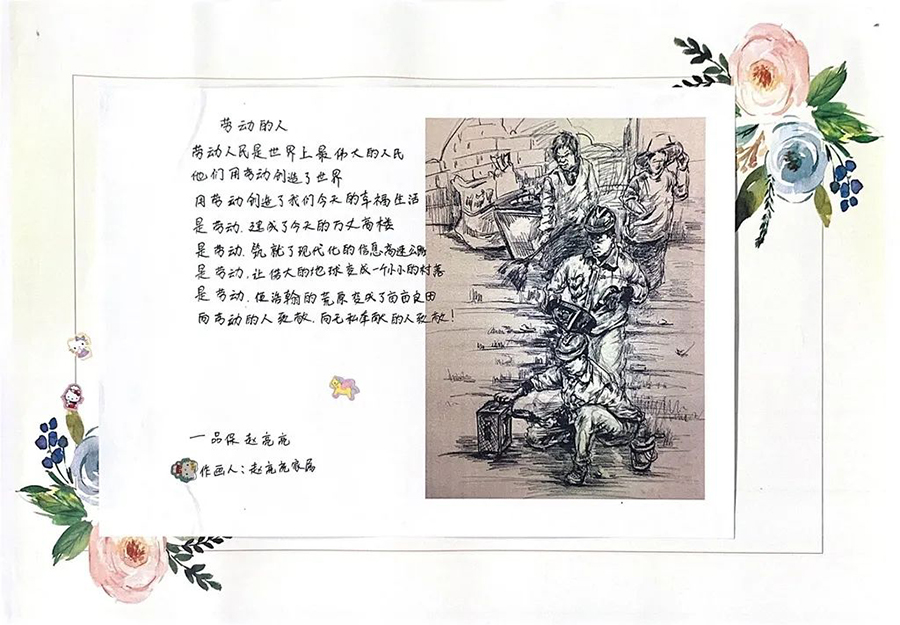 劳动的人
劳动人民是世界上最伟大的人民
他们用劳动创造了世界
用劳动创造了我们今天的幸福生活
是劳动.建成了今天的万丈高楼
是劳动.筑就了现代化的信息高速公路
是劳动.让偌大的地球变成一个小小的村落
是劳动.使浩翰的荒原变成了亩亩良田
向劳动的人致敬.向无私奉献的人致敬!
一品保 赵亮亮
作画人:赵亮亮家属